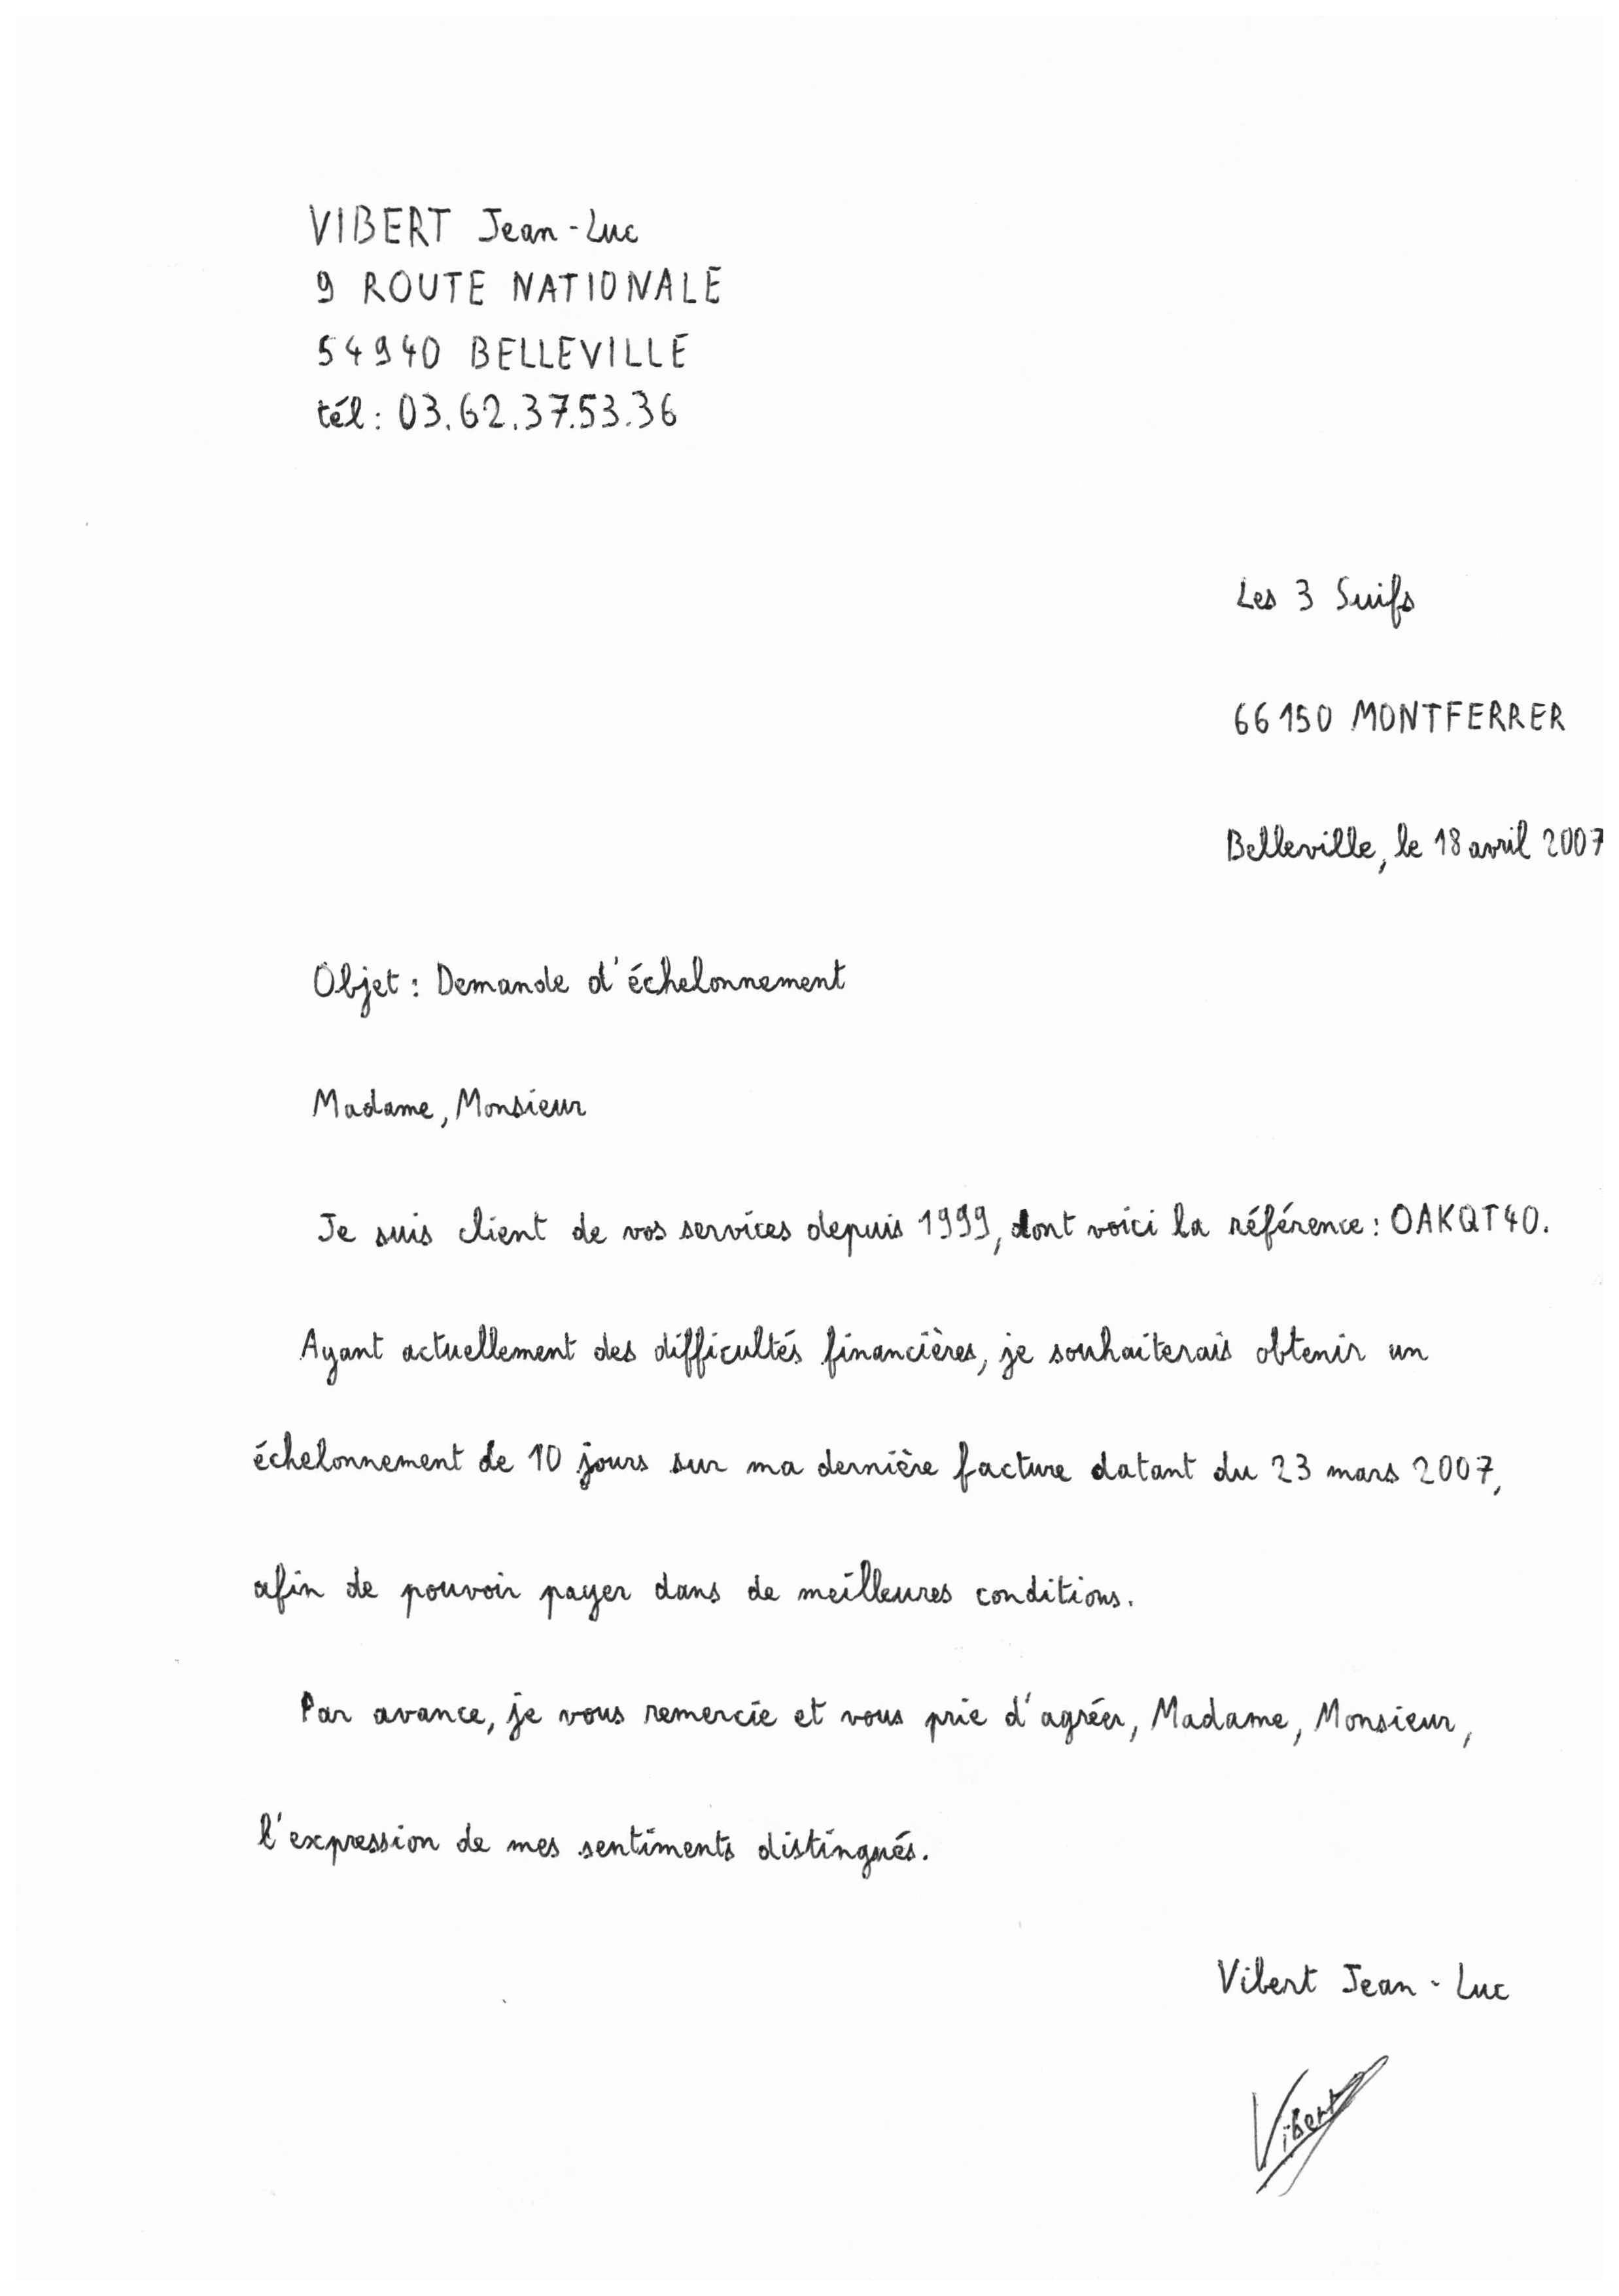 VIBERT Jean-Luc
9 ROUTE NATIONALE
54940 BELLEVILLE
tél : 03.62.37.53.36
Les 3 Suifs
66150 MONTFERRER
Belleville, le 18 avril 2007
Objet : Demande d'échelonnement
Madame, Monsieur
Je suis client de vos services depuis 1999, dont voici la référence : OAKQT40.
Ayant actuellement des difficultés financières, je souhaiterais obtenir un
échelonnement de 10 jours sur ma dernière facture datant du 23 mars 2007,
afin de pouvoir payer dans de meilleures conditions.
Par avance, je vous remercie et vous prie d'agréer, Madame, Monsieur,
l'expression de mes sentiments distingués.
Vibert Jean-Luc
Vibert